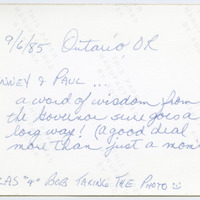 9/6/85 Ontario, OR
NNEY & PAUL ....
a word of wisdom from
the Governor sure goes a
long way! (a good deal
more than just a mon
"4" BOB TAKING THE PHOTO